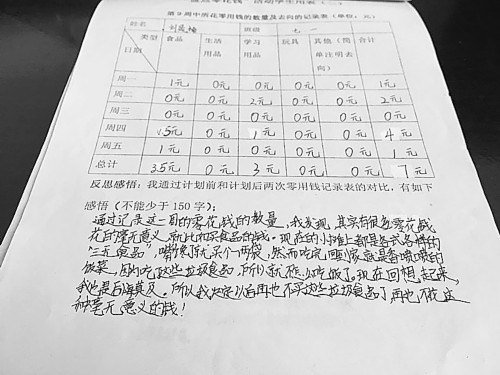 盘点零花钱"活动学生用表(二)
第9周中所花零用钱的数量及去向的记录表(单位:元)
姓名 班级 七一
类型 日期 食品 生活用品 学习用品 玩具 其他(简单注明去向) 合计
周一 1元 0元 0元 0元 0元 1元
周二 0元 0元 2元 0元 0元 2元
周三 0元 0元 0元 0元 0元 0元
周四 1.5元 0元 1元 0元 0元 4元
周五 1元 0元 0元 0元 0元 1元
总计 3.5元 0元 3元 0元 0元 7元
反思感悟:我通过计划前和计划后两次零用钱记录表的对比,有如下
感悟(不能少于150字):
通过记录这一周的零花钱的数量,我发现,其实有很多零花钱
花的毫无意义,就比如买食品的钱。现在的小摊上都是各式各样的
"三无食品",嘴馋了就买个两袋,然而吃完回到家就是香喷喷的
饭菜,因为吃这些垃圾食品,所以就不想吃饭了。现在回想起来,
我也是后悔莫及。所以我决定以后再也不买这些垃圾食品了,再也不花这
种毫无意义的钱!